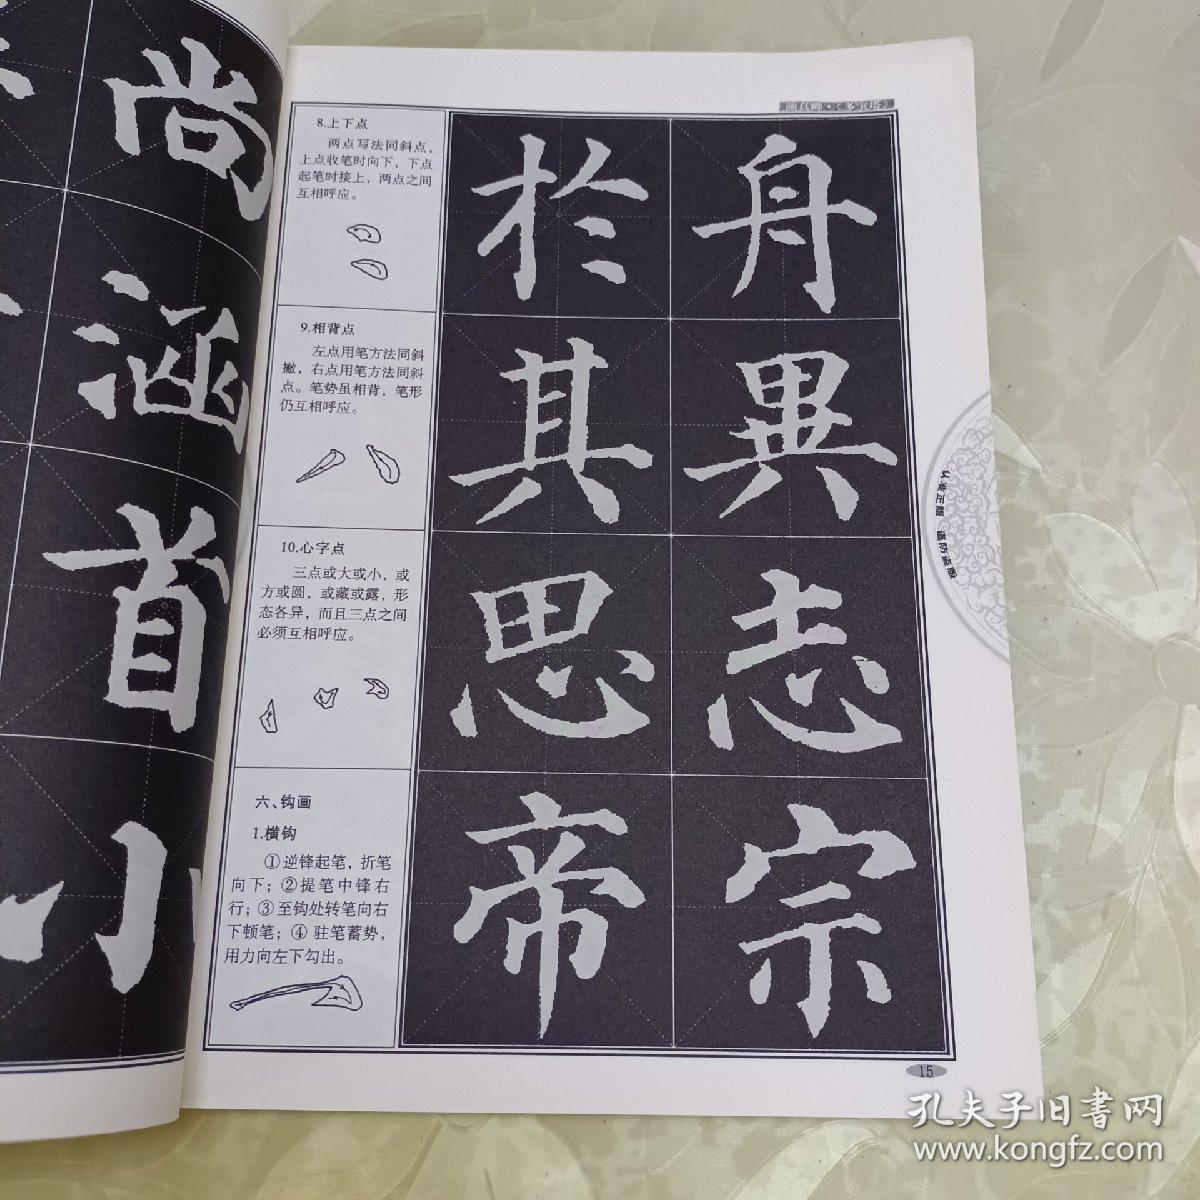 尚
涵
首
小
颜真卿·《多宝塔》
8.上下点
两点写法同斜点，
上点收笔时向下，下点
起笔时接上，两点之间
互相呼应。
於 舟
9.相背点
左点用笔方法同斜
撇，右点用笔方法同斜
点。笔势虽相背，笔形
仍互相呼应。
其 異
10.心字点
三点或大或小，或
方或圆，或藏或露，形
态各异，而且三点之间
必须互相呼应。
思 志
六、钩画
1.横钩
①逆锋起笔，折笔
向下；②提笔中锋右
行；③至钩处转笔向右
下顿笔；④驻笔蓄势，
用力向左下勾出。
帝 宗
认准正版 谨防盗版
15
孔夫子旧书网
www.kongfz.com